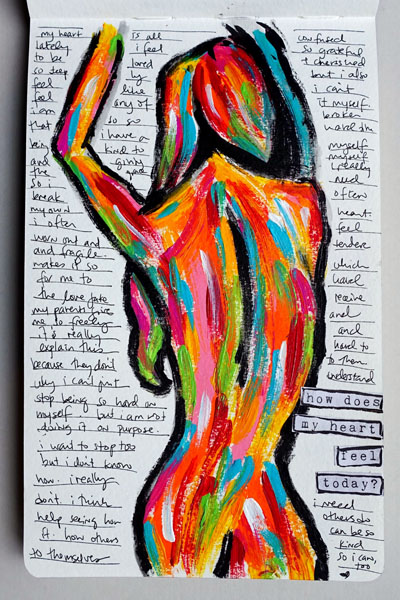 my heart
lately
to be
so deep
feel
feel
i am
that
and
the
so i
break
my own
i often
worn out and
and fragile.
makes it so
for me to
the love
my parents give
me so freely
it's really
explain this
because they don't
why i can't just
stop being so hard on
myself but i am not
doing it on purpose.
i want to stop too
but i don't know
how. i really
don't i think
help seeing how
it. how others
to themselves
is all
i feel
loved
ly
like
any of
so so
i have a
kind to
confused
so grateful
+ cherished
but i also
i can't
it myself
broken
myself
myself
really
need
often
heart
feel
tender
which
receive
and
and
hard to
to them
understand
how does
my heart
feel
today?
i need
others do
can be so
kind
so i can,
too